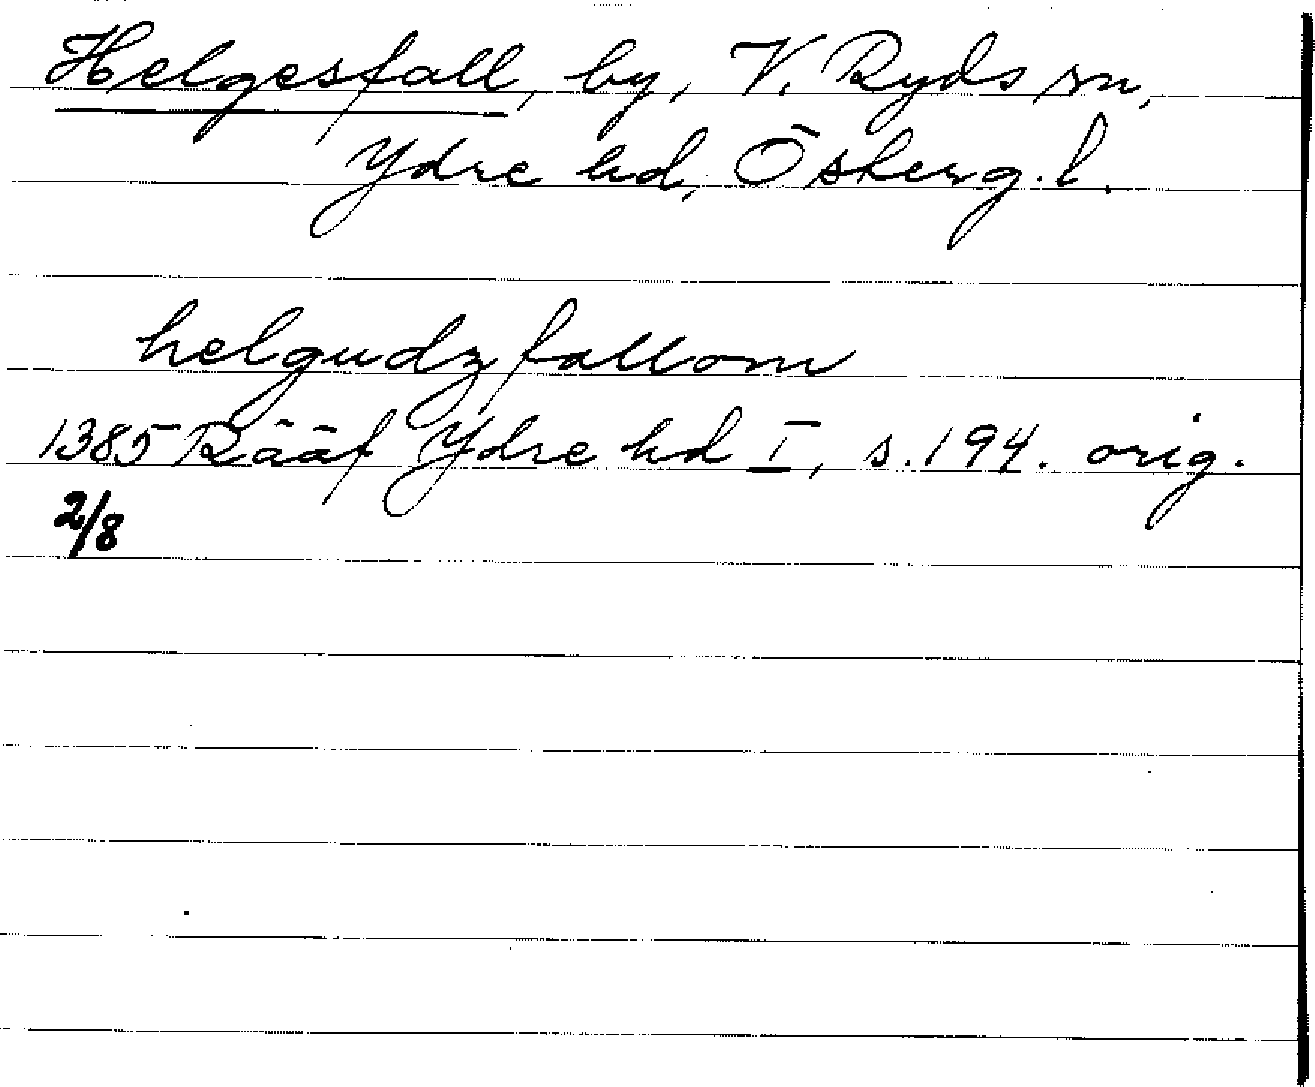 Helgesfall, by, V. Ryds sn,
Ydre hd, Österg. l.
helgudzfallom
1385 Rääf Ydre hd I, s. 194. orig.
2/8